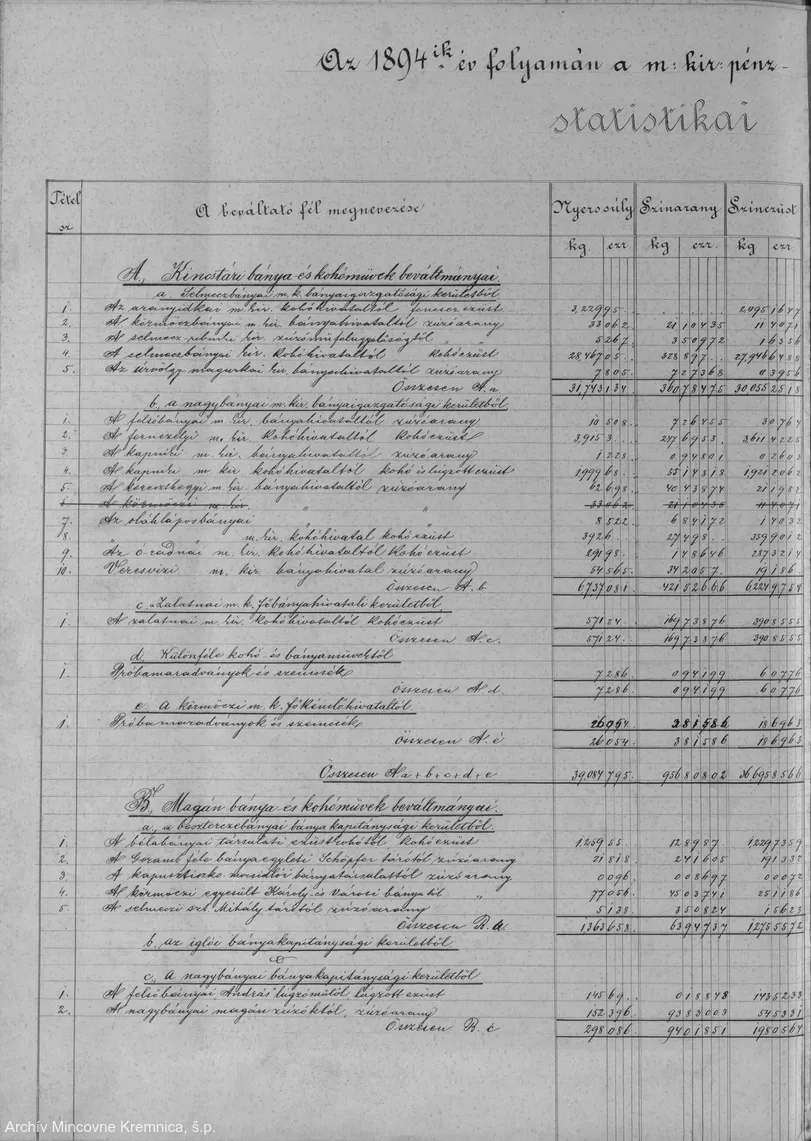 Az 1894ik év folyamán a m: kir: pénz-
statistikai
Tétel sz
A beváltató fél megnevezése
Nyerssúly Színarany Színezüst
kg. ezr kg ezr. kg ezr
A, Kincstári bánya és kohóművek beváltmányai.
a, Selmeczbányai m. k. bányaigazgatósági kerületből
1. Az aranyidkai m. kir. kohóhivataltól foncsorezüst 3,22995 2,0951647
2. A körmöczbányai m. kir. bányahivataltól zúzóarany 33062 2110435 114071
3. A selmecz kir. zúzóműfelügyelőségtől " 5267 350972 16356
4. A selmeczbányai kir. kohóhivataltól kohóezüst 28,46705 328897 27,9466488
5. Az úrvölgy magurkai kir. bányahivataltól zúzóarany 7805 727368 03956
Összesen A.a 31,743134 36078475 300552518
b, a nagybányai m. kir. bányaigazgatósági kerületből
1. A felsőbányai m. kir. bányahivataltól zúzóarany 10508 726455 30764
2. A fernezelyi m. kir. kohóhivataltól kohóezüst 3,9153 2476953 36114225
3. A kapniki m. kir. bányahivataltól zúzóarany 1228 094801 02603
4. A kapniki m. kir kohóhivataltól kohó és lúgzott ezüst 199968 5514318 19212062
5. A kereszthegyi m. kir. bányahivataltól zúzóarany 62698 4043874 21982
6 A körmöczi m. kir. " " 33062 2110435 114071
7. Az oláhláposbányai 8522 684172 14032
8. " m. kir. kohóhivatal kohóezüst 3926 27498 359012
9. Az ó-radnai m. kir. kohóhivataltól kohóezüst 29198 148646 2873214
10. Veresvizi m. kir. bányahivatal zúzóarany 54565 342057 19186
Összesen A. b 6737081 42152666 62249754
c. Zalatnai m. k. főbányahivatali kerületből
1. A zalatnai m. kir. kohóhivataltól kohóezüst 57124 16973876 3908555
Összesen A. c. 57124 16973876 3908555
d, Különféle kohó és bányaművektől
1. Próbamaradványok és szemcsék 7286 094199 60776
Összesen A d. 7286 094199 60776
e, a körmöczi m. k. főkémlőhivataltól
1. Próbamaradványok és szemcsék 26054 381586 186963
Összesen A. é 26054 381586 186963
Összesen A a + b + c + d + e 39,084795 95680802 366958566
B, Magán bánya és kohóművek beváltmányai.
a, a beszterczebányai bányakapitánysági kerületből.
1. A bélabányai társulati ezüstkohótól kohóezüst 125955 128987 12297359
2. A Geramb féle bányaegyleti Schöpfer tárótól zúzóarany 21818 241605 191332
3. A bányatársulattól zúzóarany 0096 008697 00072
4. A körmöczi egyesült Károly és Városi bányától " 77056 4503741 251186
5. A selmeczi szt. Mihály tárótól zúzóarany 5138 350824 15623
Összesen B. a 1363658 6394737 12755572
b, az iglói bányakapitánysági kerületből
c, a nagybányai bányakapitánysági kerületből
1. A felsőbányai András lúgzóműtől lúgzott ezüst 14569 018848 1435233
2. A nagybányai magán zúzóktól, zúzóarany 152396 9383003 545331
Összesen B. c 298086 9401851 1980564
Archív Mincovne Kremnica, š.p.